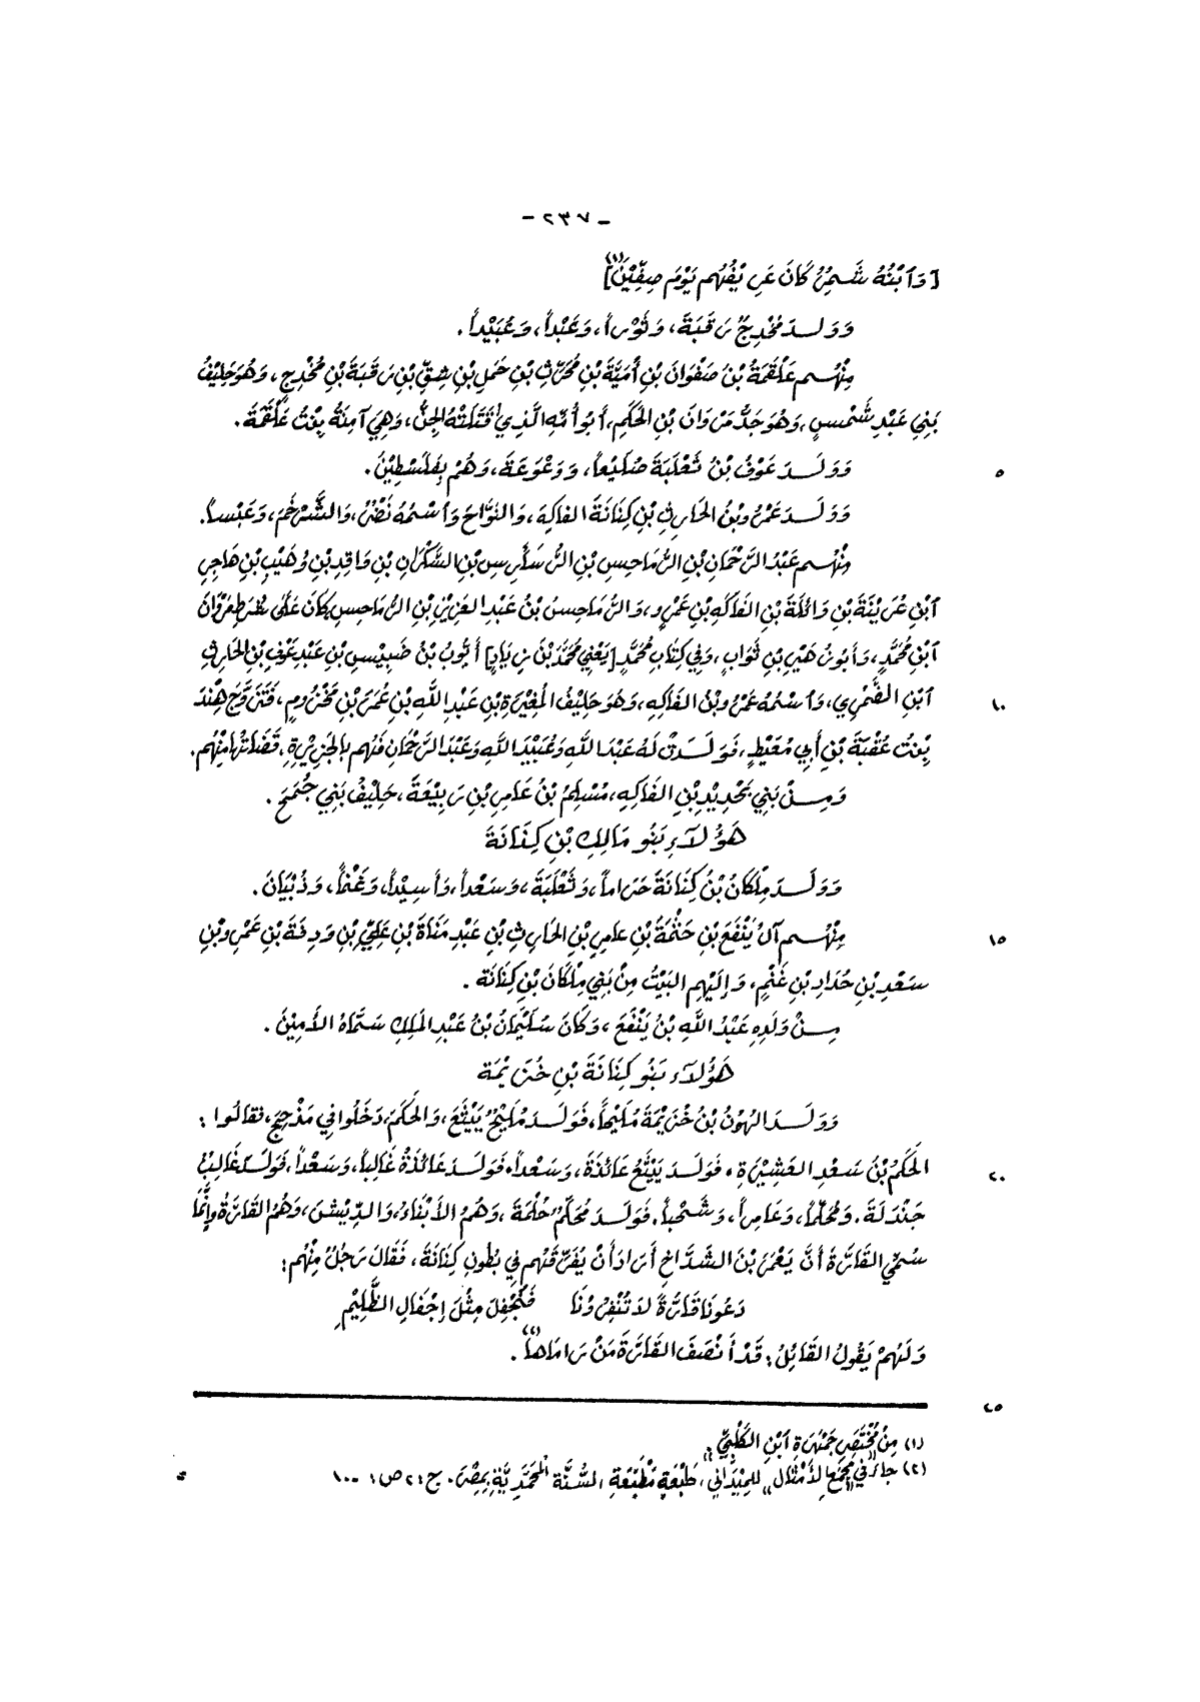 - ٢٣٧ -
[وَٱبْنُهُ شَمِرُ كَانَ عَرِيْفُهُم يَوْمَ صِفِّيْنَ](١)
وَوَلَدَ مُخْدِجٌ رَقَبَةَ، وَثَوْراً، وَعَبْداً، وَعُبَيْداً.
مِنْهُم عَلْقَمَةُ بْنُ صَفْوَانَ بْنِ أُمَيَّةَ بْنِ مُحَرِّثِ بْنِ خُمَلِ بْنِ شِقِّ بْنِ رَقَبَةَ بْنِ مُخْدِجٍ، وَهُوَ حَلِيْفُ
بَنِي عَبْدِ شَمْسٍ، وَهُوَ جَدُّ مَرْوَانَ بْنِ الحَكَمِ، أَبُو أُمِّهِ الَّذِي قَتَلَتْهُ الجِنُّ، وَهِيَ آمِنَةُ بِنْتُ عَلْقَمَةَ.
وَوَلَدَ عَوْفُ بْنُ ثَعْلَبَةَ ضُلَيْعاً، وَوَعْوَعَةَ، وَهُمْ بِفَلَسْطِيْنَ. ٥
وَوَلَدَ عَمْرُو بْنُ الحَارِثِ بْنِ كِنَانَةَ الفَاكِهَ، وَالنُّوَّاحَ وَٱسْمُهُ نَضْرُ، وَالشَّرْخَمَ، وَعَبْساً.
مِنْهُم عَبْدُ الرَّحْمَانِ بْنِ الرُّمَاحِسِ بْنِ الرُّسَارِسِ بْنِ السَّكْرَانِ بْنِ وَاقِدِ بْنِ وُهَيْبِ بْنِ هَاجِرِ
ٱبْنِ عُرَيْنَةَ بْنِ وَائِلَةَ بْنِ الفَاكِهِ بْنِ عَمْرٍو، وَالرُّمَاحِسُ بْنُ عَبْدِ العَزِيْزِ بْنِ الرُّمَاحِسِ، كَانَ عَلَى شُرَطِ مَرْوَانَ
ٱبْنِ مُحَمَّدٍ، وَأَبُو رُهَيْرِ بْنِ ثَوَابٍ، وَفِي كِتَابِ مُحَمَّدٍ [يَعْنِي مُحَمَّدَ بْنَ زِيَادٍ] أَيُّوبُ بْنُ ضَبِيْسِ بْنِ عَبْدِ عَوْفِ بْنِ الحَارِثِ
ٱبْنِ القَمْرِي، وَٱسْمُهُ عَمْرُو بْنُ الفَاكِهِ، وَهُوَ حَلِيْفُ المُغِيْرَةِ بْنِ عَبْدِ اللَّهِ بْنِ عُمَرَ بْنِ مَخْزُومٍ، فَتَزَوَّجَ هِنْدَ ١٠
بِنْتُ عُقْبَةَ بْنِ أَبِي مُعَيْطٍ، فَوَلَدَتْ لَهُ عَبْدَ اللَّهِ وَعُبَيْدَ اللَّهِ وَعَبْدَ الرَّحْمَانِ فَهُم بِالجَزِيْرَةِ، قُضَاتُهَا مِنْهُم.
وَمِنْ بَنِي بُحْدِيْدِ بْنِ الفَاكِهِ، مُسْلِمُ بْنُ عَامِرِ بْنِ رَبِيْعَةَ، حَلِيْفُ بَنِي جُمَحَ.
هَؤُلَآءِ بَنُو مَالِكِ بْنِ كِنَانَةَ
وَوَلَدَ مِلْكَانُ بْنُ كِنَانَةَ حَرَاماً، وَثَعْلَبَةَ، وَسَعْداً، وَأَسِيْداً، وَغَنْماً، وَذُبْيَانَ.
مِنْهُم آلُ يَنْفَعَ بْنِ خَثْمَةَ بْنِ عَامِرِ بْنِ الحَارِثِ بْنِ عَبْدِ مَنَاةَ بْنِ عَلِيِّ بْنِ وَدِقَةَ بْنِ عَمْرِو بْنِ ١٥
سَعْدِ بْنِ حُدَادِ بْنِ غَنْمٍ، وَإِلَيْهِم البَيْتُ مِنْ بَنِي مِلْكَانَ بْنِ كِنَانَة.
مِنْ وَلَدِهِ عَبْدُ اللَّهِ بْنُ يَنْفَعَ، وَكَانَ سُلَيْمَانُ بْنُ عَبْدِ المَلِكِ سَمَّاهُ الأَمِيْنَ.
هَؤُلَآءِ بَنُو كِنَانَةَ بْنِ خُزَيْمَة
وَوَلَدَ الهُوْنُ بْنُ خُزَيْمَةَ مُلَيْحاً، فَوَلَدَ مُلَيْحٌ يَيْثَعَ، وَالحَكَمَ، دَخَلُوا فِي مَذْحِجٍ، فقالُوا:
الحَكَمُ بْنُ سَعْدِ العَشِيْرَةِ، فَوَلَدَ يَيْثَعُ عَائِذَةَ، وَسَعْداً، فَوَلَدَ عَائِذَةُ غَالِباً، وَسَعْداً، فَوَلَدَ غَالِبُ ٢٠
جَنْدَلَةَ، وَمُحَلِّماً، وَعَامِراً، وَشَحْباً، فَوَلَدَ مُحَلِّمٌ حُلْمَةَ، وَهُمُ الأَبْنَاءُ، وَالدِّيْشَ، وَهُمُ القَارَةُ وإنَّمَا
سُمِّيَ القَارَّةَ أَنَّ يَعْمَرَ بْنَ الشَّدَّاخِ أَرَادَ أَنْ يُفَرِّقَهُم فِي بُطُونِ كِنَانَةَ، فَقَالَ رَجُلٌ مِنْهُم:
دَعُونَا قَارَةً لَا تُنْفِرُونَا فَنُجْفِلَ مِثْلَ إِجْفَالِ الظَّلِيْمِ
وَلَهُمْ يَقُولُ القَائِلُ: قَدْ أَنْصَفَ القَارَّةَ مَنْ رَامَاهَا(٢).
٢٥
(١) مِنْ مُخْتَصَرِ جَمْهَرَةِ ٱبْنِ الكَلْبِيِّ.
(٢) جاءَ فِي «مَجْمَعِ الأَمْثَالِ» للمِيْدَانِي، طَبْعَةِ مَطْبَعَةِ السُّنَّة المحَمَّدِيَّةِ بِمِصْرَ. ج: ٢ ص: ١٠٠